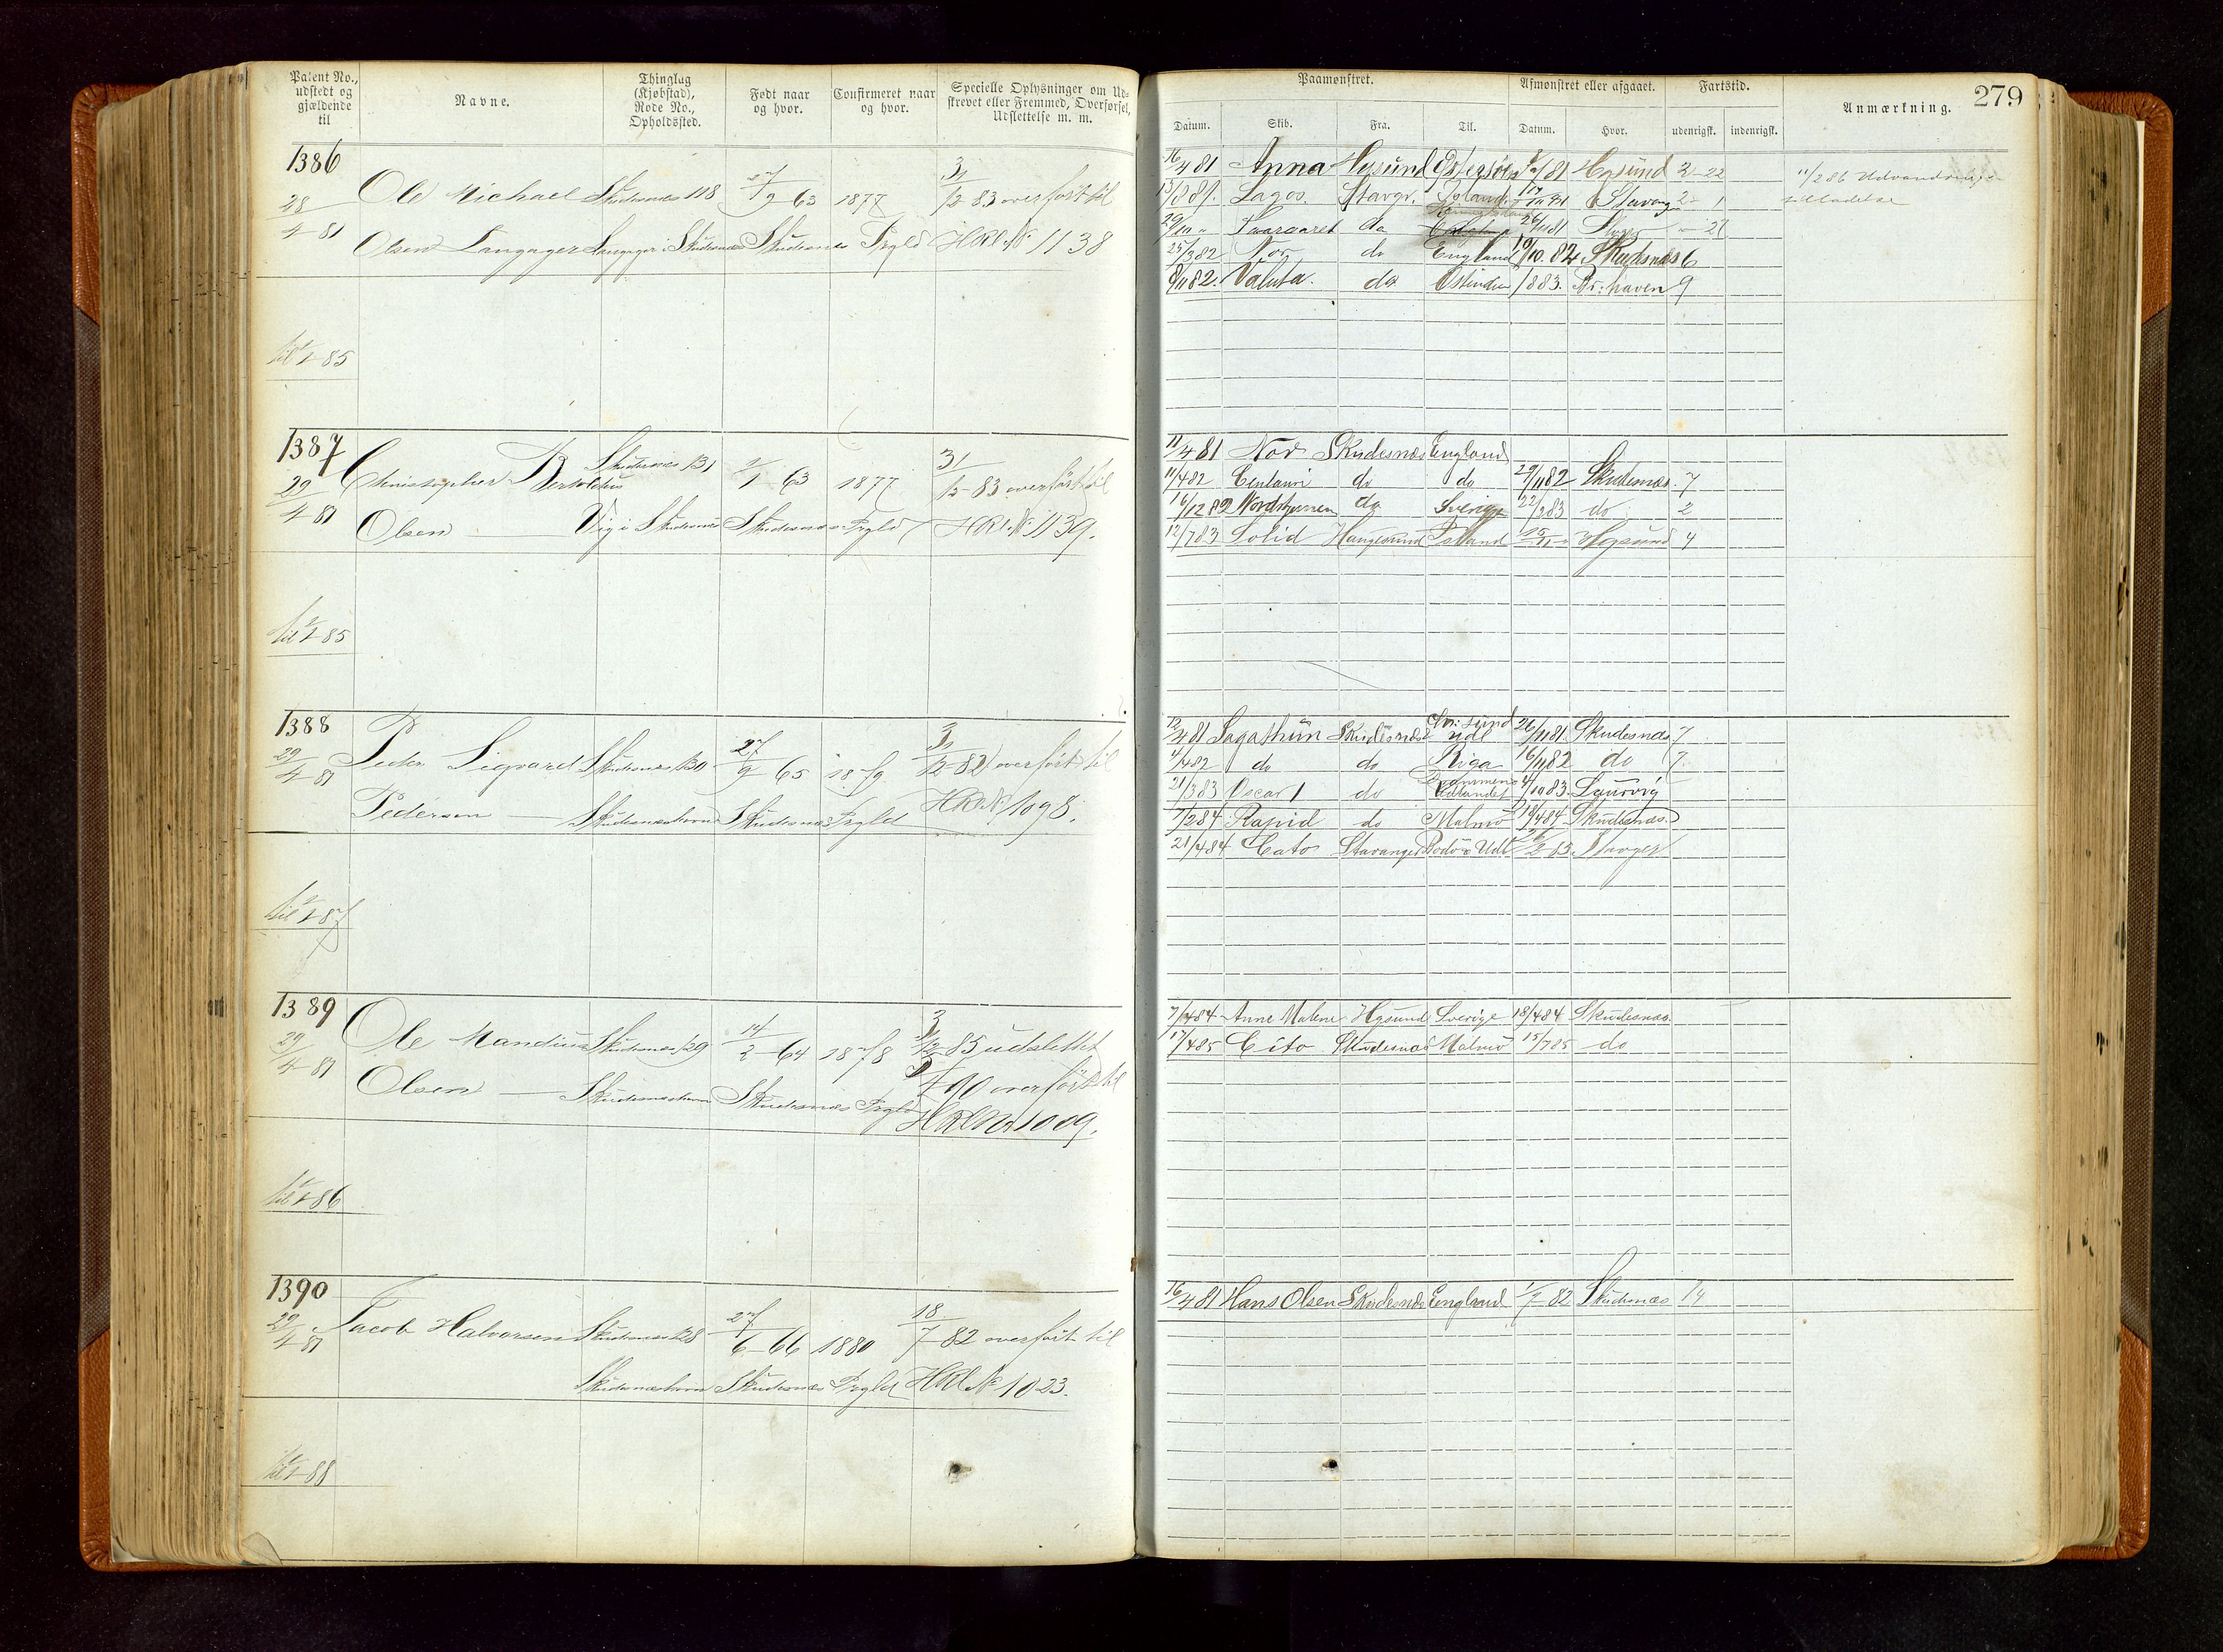 Patent No., udstedt og gjældende til
Navne.
Thinglag (Kjøbstad), Rode No., Opholdssted.
Født naar og hvor.
Confirmeret naar og hvor.
Specielle Oplysninger om Udskrevet eller Fremmed, Overførsel, Udslettelse m. m.
Paamønstret.
Datum.
Skib.
Fra.
Til.
Afmønstret eller afgaaet.
Datum.
Hvor.
Fartstid.
udenrigsk.
indenrigsk.
Anmærkning.
279
1386
28/4 81
Ole Michael Skudesnæs 118 27/9 63 1877 31/12 83 overført til
Olsen Langager Langager i Skudesnæs Skudesnæs Prgld HRl. No 1138
til 1/1 85
16/4 81 Anna Hgsund Østersøen /81 Hgsund 2-22
11/2 86 Udvandrings
tilladelse
13/8 81. Lagos. Stavgr. Island Stavanger 2- 1
29/10 " do 26/11 81 Stvger - 27
25/3 82 Nor do England 19/10. 82 Skudesnæs 6
9/11 82. Valuta. do Ostindien 1/8 83. Br:haven 9
1387
29/4 81
Christopher Bertoldius Skudesnæs 131 2/1 63 1877 31/12 83 overført til
Olsen Vig i Skudesnæs Skudesnæs Prgld HRl. No 1139.
til 1/1 85
11/4 81 Nor Skudesnæs England
11/4 82 do do 29/11 82 Skudesnæs. 7
16/12 82 Nordstjernen do Sverige 22/2 83 do 2
12/7 83 Solid Haugesund Island Hgsund 4
1388
29/4 81
Peder Sigvard Skudesnæs 130 27/9 65 1879 31/12 82 overført til
Pedersen Skudesnæshavn Skudesnæs Prgld HRl. No 1098.
til 1/1 87
12/4 81 Sagathun Skudesnæs Chr:sund udl 26/11 81 Skudesnæs 7
4/4 82 do do Riga 16/11 82 do 7
21/3 83 Oscar I do Drammen Udlandet 4/10 83. Laurvig
7/2 84 Rapid do Malmø 18/4 84 Skudesnæs.
21/4 84 Cato Stavanger Bodø o Udl 2 85. Stavger
1389
29/4 81
Ole Mandius Skudesnæs 129 14/2 64 1878 31/12 85 udslettet
Olsen Skudesnæshavn Skudesnæs Prgld 90 overført til
HRl No 1009.
til 1/1 86
7/4 84 Anne Malene Hgsund Sverige 18/4 84 Skudesnæs.
17/4 85 Cito Skudesnæs Malmø 15/7 85 do
1390
29/4 81
Jacob Halvorsen Skudesnæs 128 27/6 66 1880 18/7 82 overført til
Skudesnæshavn Skudesnæs Prgld HRl. No 1023.
til 1/1 88
16/4 81 Hans Olsen Skudesnæs England 1/7 82 Skudesnæs 14